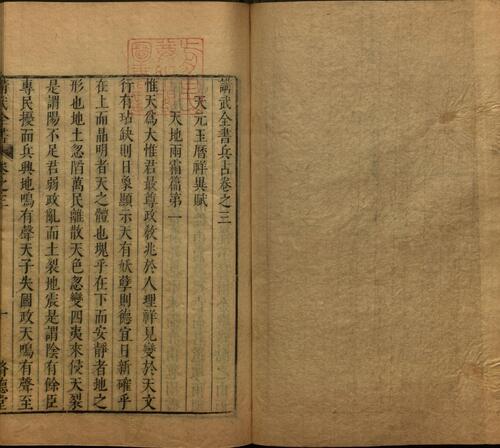 講武全書兵占卷之三
天元玉曆祥異賦
天地雨霜篇第一
惟天爲大惟君最尊政教兆於人理祥見變於天文
行有玷缺則日象顯示天有妖孽則德宜日新確乎
在上而晶明者天之體也塊乎在下而安靜者地之
形也地土忽陷萬民離散天色忽變四夷來侵天裂
是謂陽不足君弱政亂而土裂地震是謂陰有餘臣
專民擾而兵興地鳴有聲天子失國政天鳴有聲至
講武全書 卷之三 一